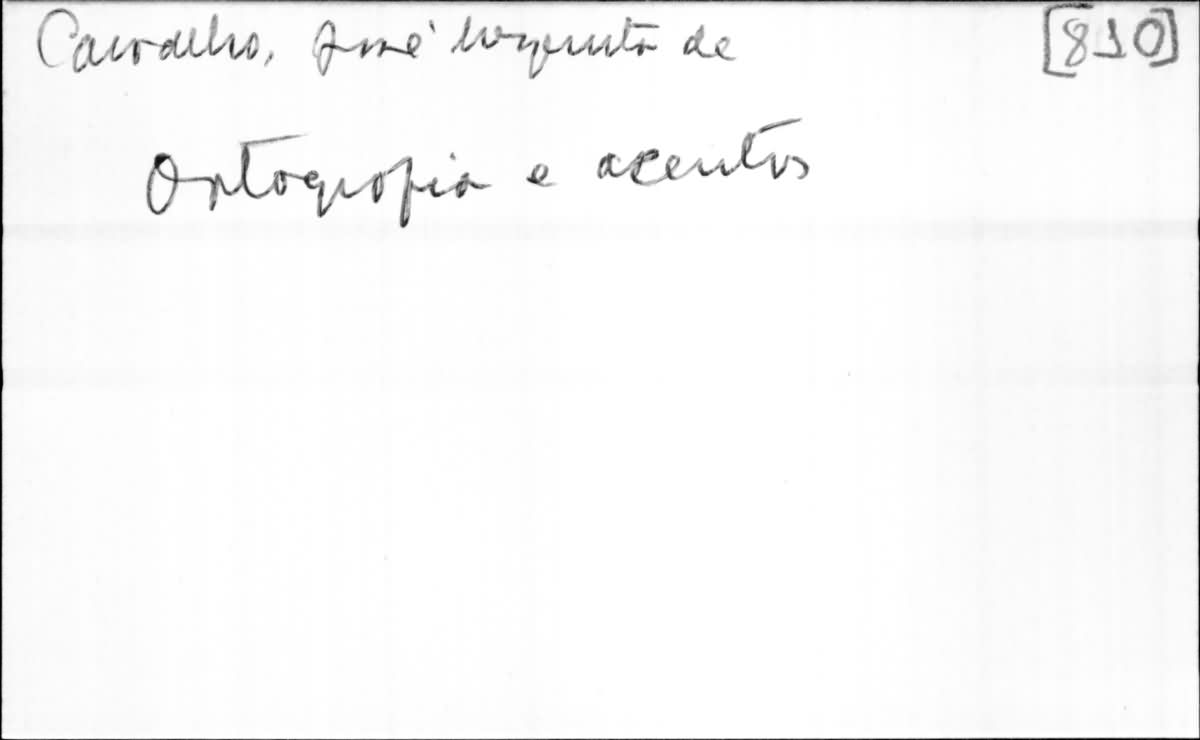 Carvalho, José de [810]
Ortografia e acentos